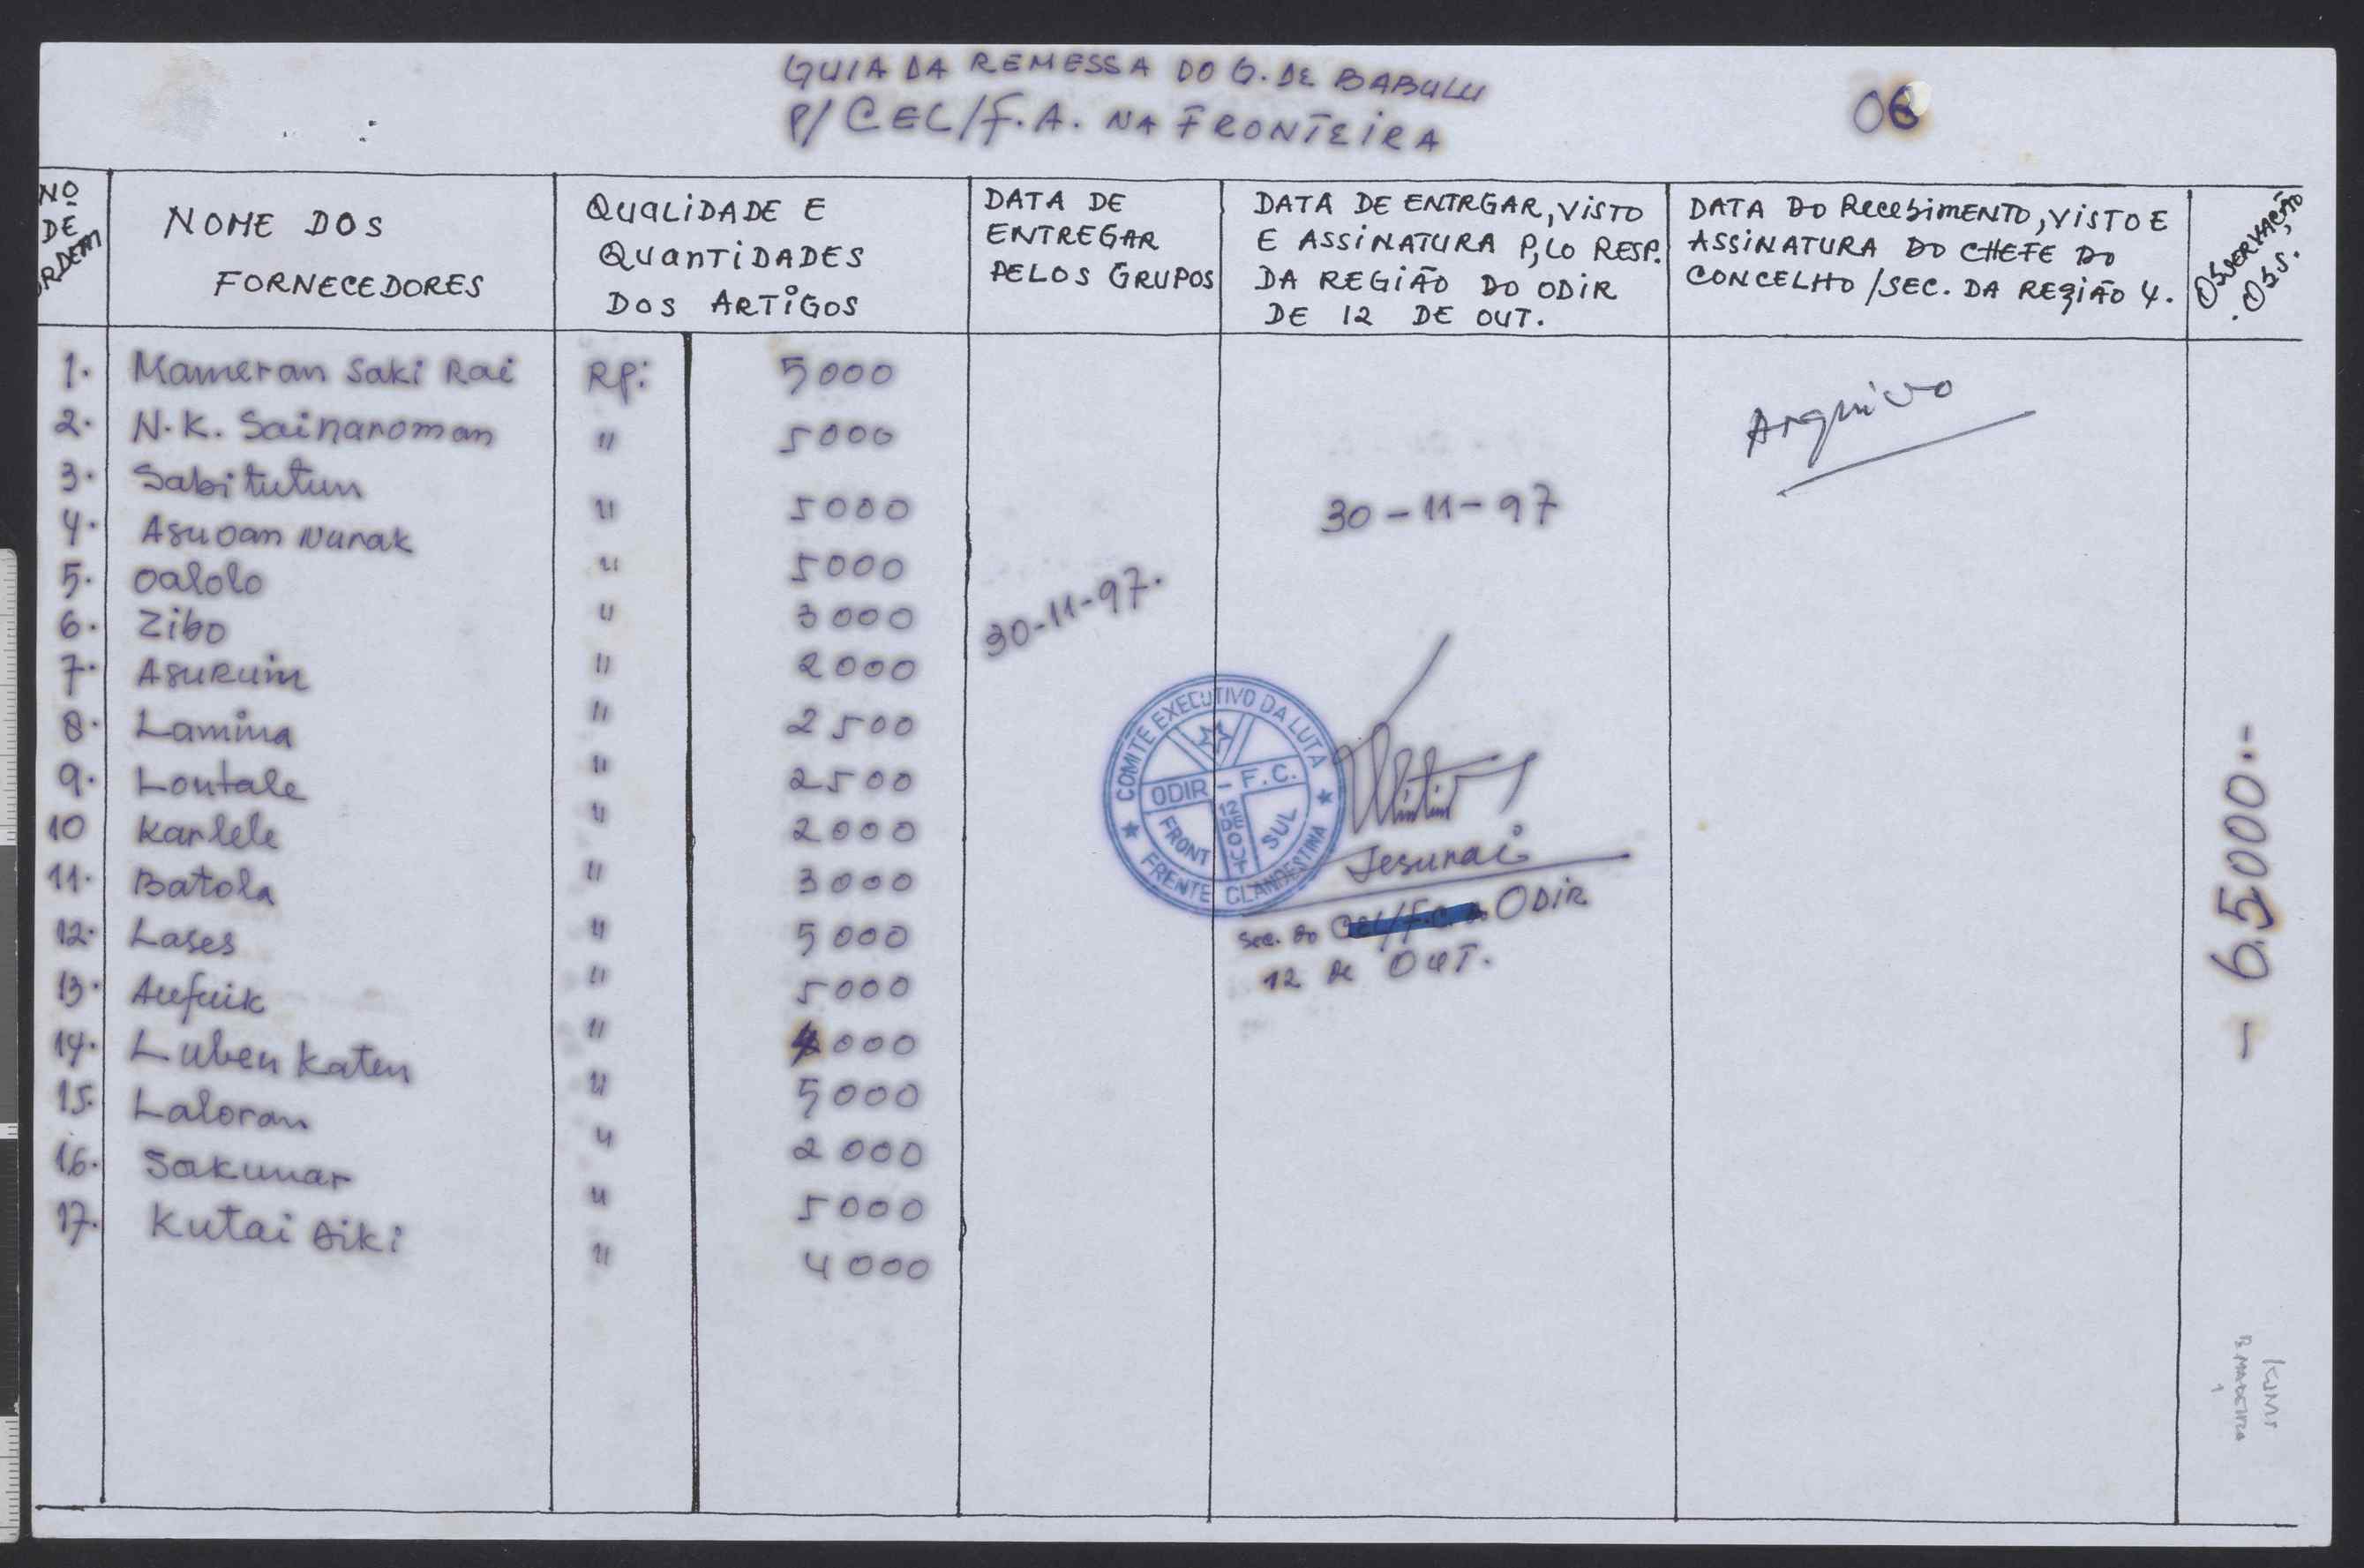 GUIA DA REMESSA DO G. DE BABULU
P/ CEL/F.A. NA FRONTEIRA
Nº DE ORDEM
NOME DOS FORNECEDORES
QUALIDADE E QUANTIDADES DOS ARTIGOS
DATA DE ENTREGAR PELOS GRUPOS
DATA DE ENTRGAR, VISTO E ASSINATURA P,LO RESP. DA REGIÃO DO ODIR DE 12 DE OUT.
DATA DO RecebiMENTO, VISTO E ASSINATURA DO CHEFE DO CONCELHO / SEC. DA REGIÃO 4.
OBSERVAÇÃO, OBS.
1. Mameran Saki Rai Rp: 5000
2. N.K. Sainaroman " 5000
3. Sabitutun " 5000
4. Asuoan Nurak " 5000
5. Oalolo " 3000
6. Zibo " 2000
7. ASURUin " 2500
8. Lamina " 2500
9. Lontale " 2000
10 Karlele " 3000
11. Batola " 5000
12. Lases " 5000
13. Aufuik " 4000
14. Luben Katen " 5000
15. Laloran " 2000
16. Sakunar " 5000
17. Kutai Siki " 4000
30-11-97.
30-11-97
COMITÉ EXECUTIVO DA LUTA
ODIR - F.C.
12 DE OUT
FRONT SUL
FRENTE CLANDESTINA
Jesunai
Sec. do CEL/F.C. ODIR
12 de OUT.
Arquivo
- 65000.-